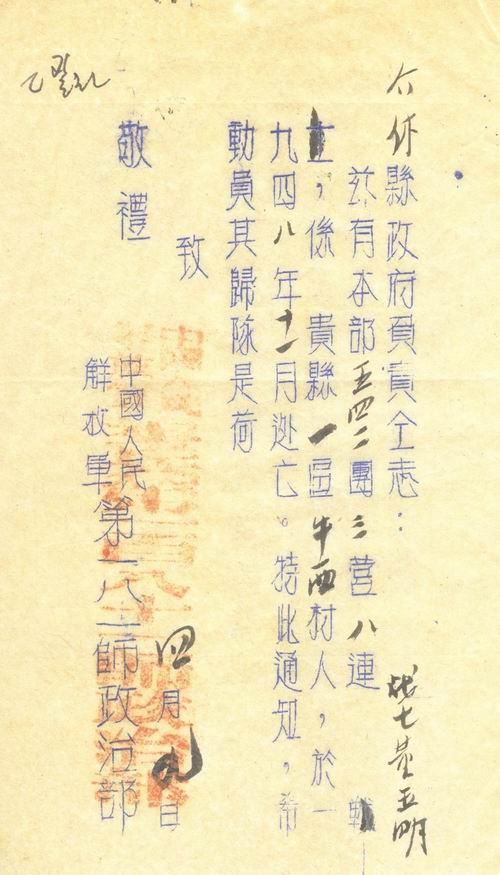 介休縣政府負責仝志：
茲有本部五四二團三营八連戰
士，係 貴縣一區牛西村人，於一
九四八年十一月逃亡。特此通知，希
動員其歸隊是荷
致
敬禮
中國人民
解放軍
第一八一師政治部
四月九日